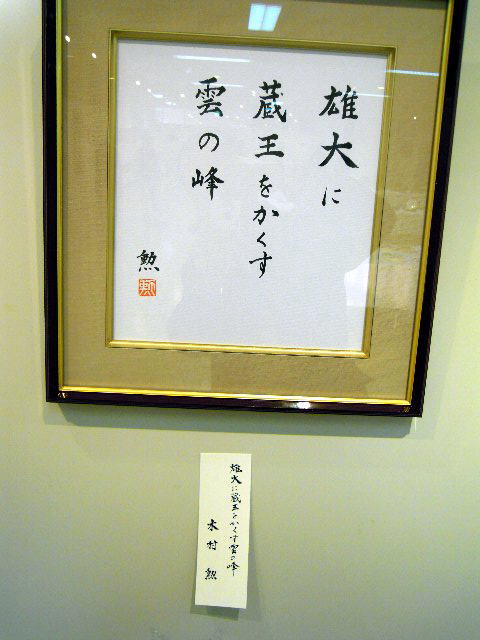 雄大に
蔵王をかくす
雲の峰
勲
勲
雄大に蔵王をかくす雲の峰
木村 勲